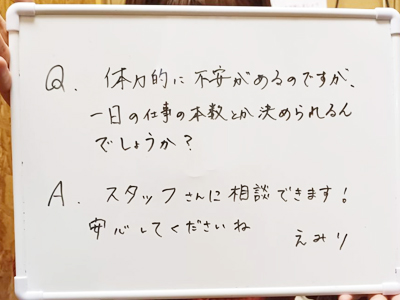 Q. 体力的に不安があるのですが、
一日の仕事の本数とか決められるん
でしょうか?
A. スタッフさんに相談できます!
安心してくださいね
えみり